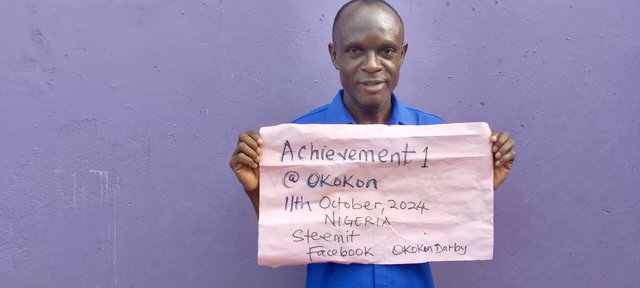 Achievement 1
@ OKOKON
11th October, 2024
NIGERIA
Steemit
Facebook OKOKon Darby